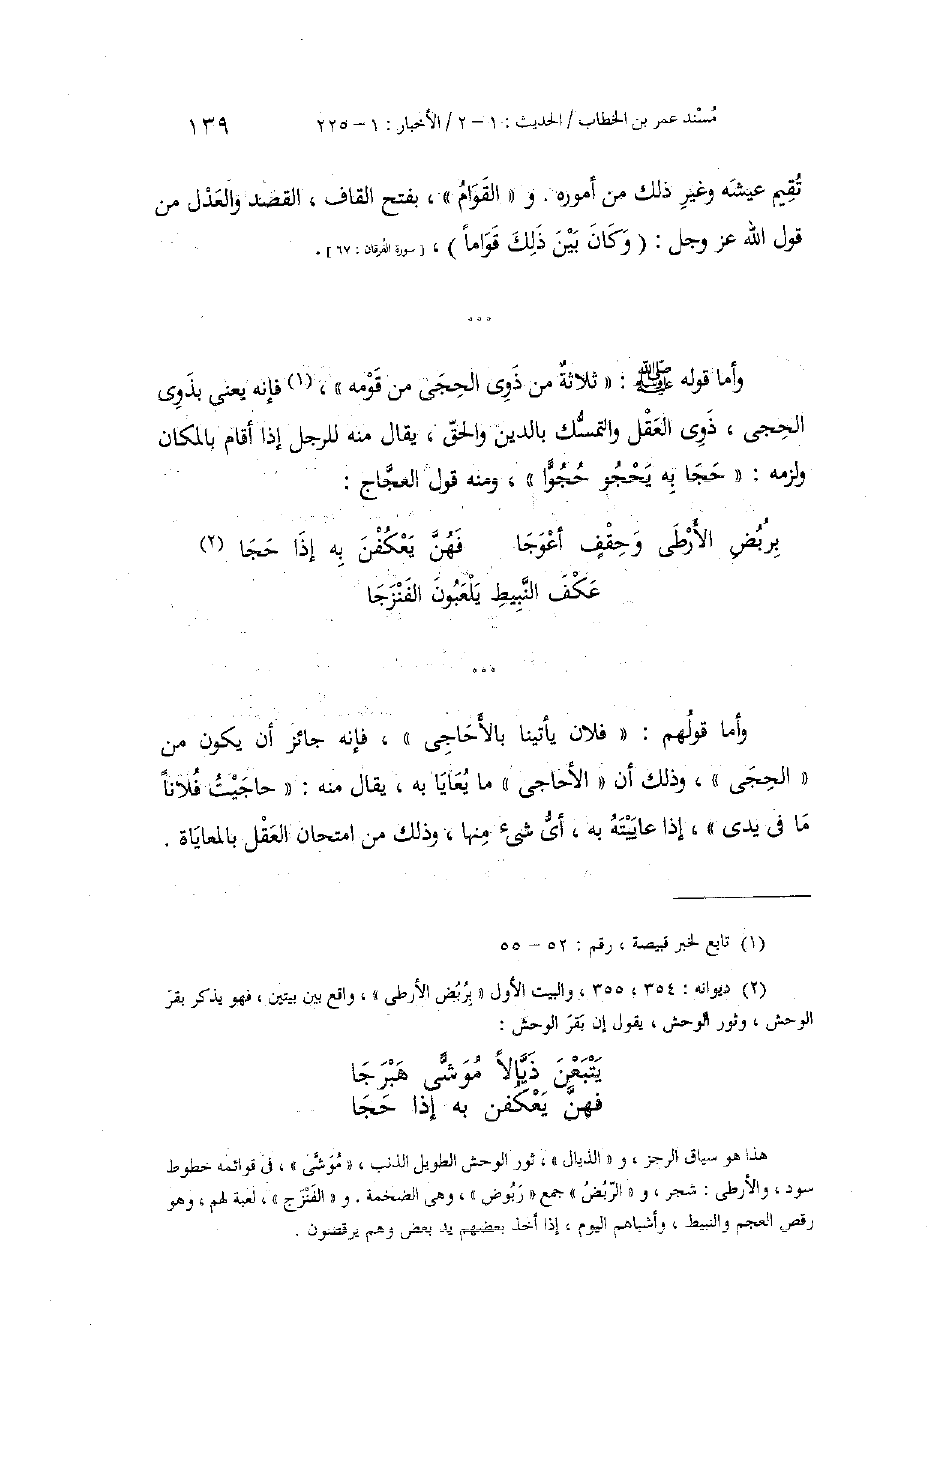 مُسْند عمر بن الخطاب / الحديث : ١ – ٢ / الأخبار : ١ – ٢٢٥ ١٣٩
تُقِيم عيشَه وغيرِ ذلك من أموره . و « القَوَامُ » ، بفتح القاف ، القصْد والعَدْل من
قول الله عز وجل : ( وَكَانَ بَيْنَ ذَلِكَ قَوَاماً ) ، [ سورة الفرقان : ٦٧ ] .
* * *
وأما قوله ﷺ : « ثلاثةٌ من ذَوِى الحِجَى من قَوْمه » ، (١) فإنه يعنى بذَوِى
الحِجى ، ذَوِى العَقْل والتمسُّك بالدين والحقّ ، يقال منه للرجل إذا أقام بالمكان
ولزمه : « حَجَا بِه يَحْجُو حُجُوًّا » ، ومنه قول العجَّاج :
بِرُبُضِ الأَرْطَى وَحِقْفٍ أعْوَجَا فَهُنَّ يَعْكُفْنَ بِه إذَا حَجَا (٢)
عَكْفَ النَّبِيطِ يَلْعَبُونَ الفَنْزَجَا
* * *
وأما قولُهم : « فلان يأتينا بالأَحَاجِى » ، فإنه جائز أن يكون من
« الحِجَى » ، وذلك أن « الأحاجى » ما يُعَايَا به ، يقال منه : « حاجَيْتُ فُلاناً
مَا فى يدى » ، إذا عايَيْتَهُ به ، أىُّ شىءٍ مِنها ، وذلك من امتحان العَقْل بالمعايَاة .
(١) تابع لخبر قبيصة ، رقم : ٥٢ – ٥٥
(٢) ديوانه : ٣٥٤ ، ٣٥٥ ، والبيت الأول « بِرُبُض الأرطى » ، واقع بين بيتين ، فهو يذكر بقرَ
الوحش ، وثور الوحش ، يقول إن بَقَرَ الوحش :
يَتْبَعْنَ ذَيَّالاً مُوَشًّى هَبْرَجَا
فهنَّ يَعْكُفن به إذا حَجَا
هذا هو سياق الرجز ، و « الذيال » ، ثور الوحش الطويل الذنب ، « مُوَشَّى » ، فى قوائمه خطوط
سود ، والأرطى : شجر ، و « الرّبُضُ » جمع « رَبُوض » ، وهى الضخمة . و « الفَنْزَج » ، لعبة لهم ، وهو
رقص العجم والنبيط ، وأشباهم اليوم ، إذا أخذ بعضهم يد بعض وهم يرقصون .